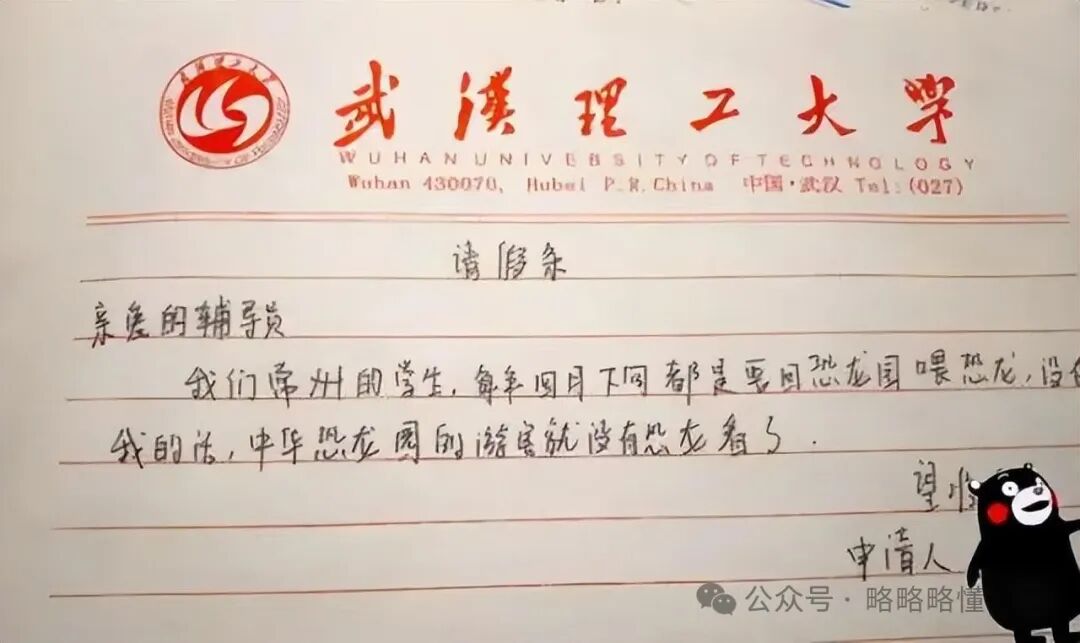 武漢理工大學
WUHAN UNIVERSITY OF TECHNOLOGY
Wuhan 430070, Hubei P.R.China 中国·武汉 Tel:(027)
请假条
亲爱的辅导员
我们常州的学生,每年四月下旬都是要回恐龙园喂恐龙,没
我的话,中华恐龙園的游客就没有恐龙看了.
望
申请人
公众号·略略略懂